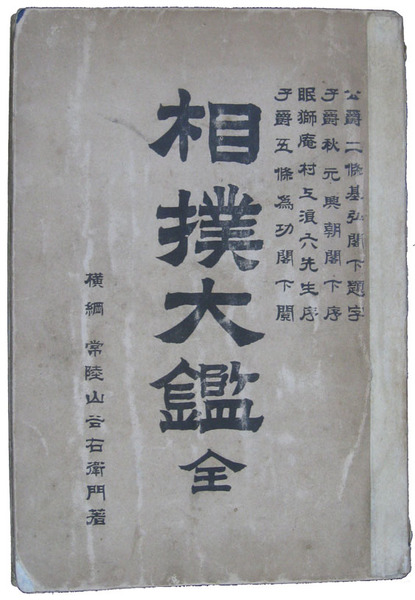 公爵二條基弘閣下題字
子爵秋元興朝閣下序
眠獅庵村上浪六先生序
子爵五條為功閣下閲
相撲大鑑 全
横綱 常陸山谷右衛門著